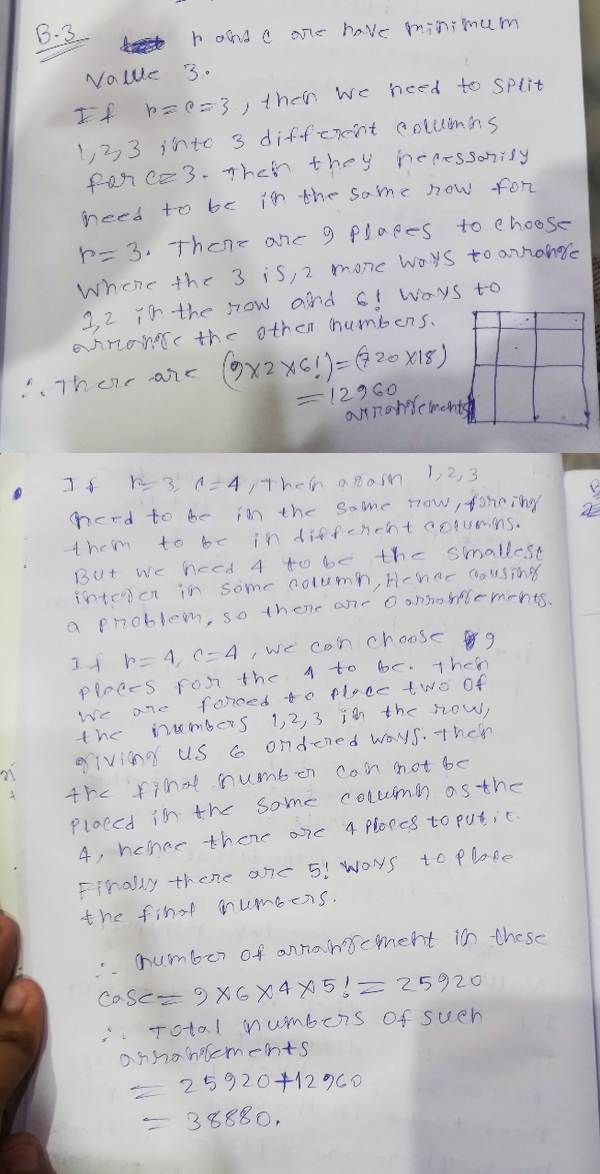 B.3
r and c are have minimum
value 3.
If r=c=3, then we need to split
1,2,3 into 3 different columns
for c=3. Then they necessarily
need to be in the same row for
r=3. There are 9 places to choose
where the 3 is, 2 more ways to arrange
1,2 in the row and 6! ways to
arrange the other numbers.
∴ There are (9×2×6!)=(720×18)
=12960
arrangements
If r=3, c=4, then again 1,2,3
need to be in the same row, forcing
them to be in different columns.
But we need 4 to be the smallest
integer in some column, Hence causing
a problem, so there are 0 arrangements.
If r=4, c=4, we can choose 9
places for the 4 to be. Then
we are forced to place two of
the numbers 1,2,3 in the row,
giving us 6 ordered ways. Then
the final number can not be
placed in the same column as the
4, hence there are 4 places to put it.
Finally there are 5! ways to place
the final numbers.
∴ number of arrangement in these
case = 9×6×4×5! = 25920
∴ Total numbers of such
arrangements
= 25920+12960
= 38880.